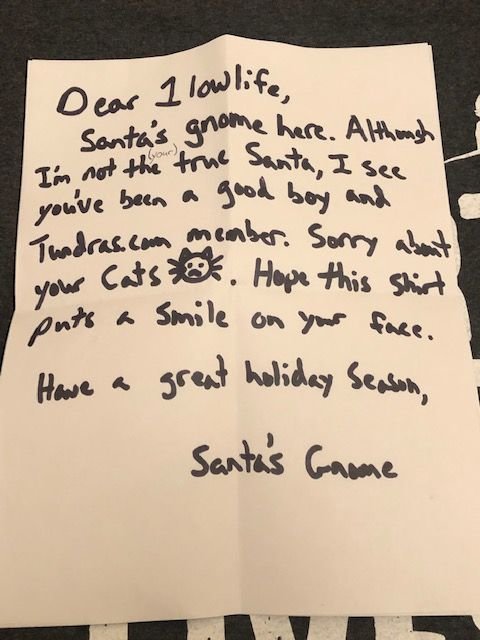 Dear 1lowlife,
Santa's gnome here. Although
I'm not the (your) true Santa, I see
you've been a good boy and
Tundras.com member. Sorry about
your Cats. Hope this shirt
puts a smile on your face.
Have a great holiday season,
Santa's Gnome